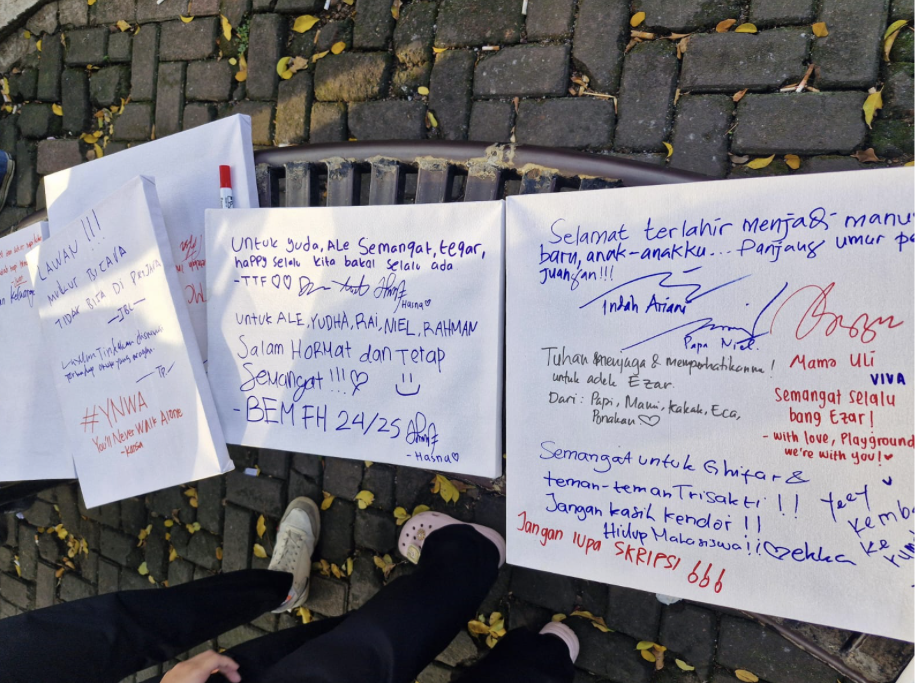 LAWAN !!!
MULUT BICARA
TIDAK BISA DI PENJARA
- JBL -
Lawan Tindakan
- TP -
#YNWA
You'll Never Walk Alone
- kansa
Untuk yuda, ALE Semangat, tegar,
happy selalu kita bakal selalu ada
- TTF ♡♡
Hasna ♡
untuk ALE, YUDHA, RAI, NIEL, RAHMAN
Salam HORMAT dan Tetap
Semangat !!! ♡
- BEM FH 24/25
- Hasna ♡
Selamat terlahir menjadi manu
baru, anak-anakku... Panjang umur pe
juangan!!!
Indah Ariani
Papa Niel.
Mama Uli
Tuhan menjaga & memperhatikanmu !
untuk adek Ezar.
Dari : Papi, Mami, Kakak, Eca,
Ponakan ♡
VIVA
Semangat selalu
bang Ezar!
- with love, Playground
we're with you! ♥
Semangat untuk Ghifar &
teman-teman Trisakti !!
Jangan kasih kendor !!
Hidup Mahasiswa !! ♡ ekka
Jangan lupa SKRIPSI
kemba
ke
rum